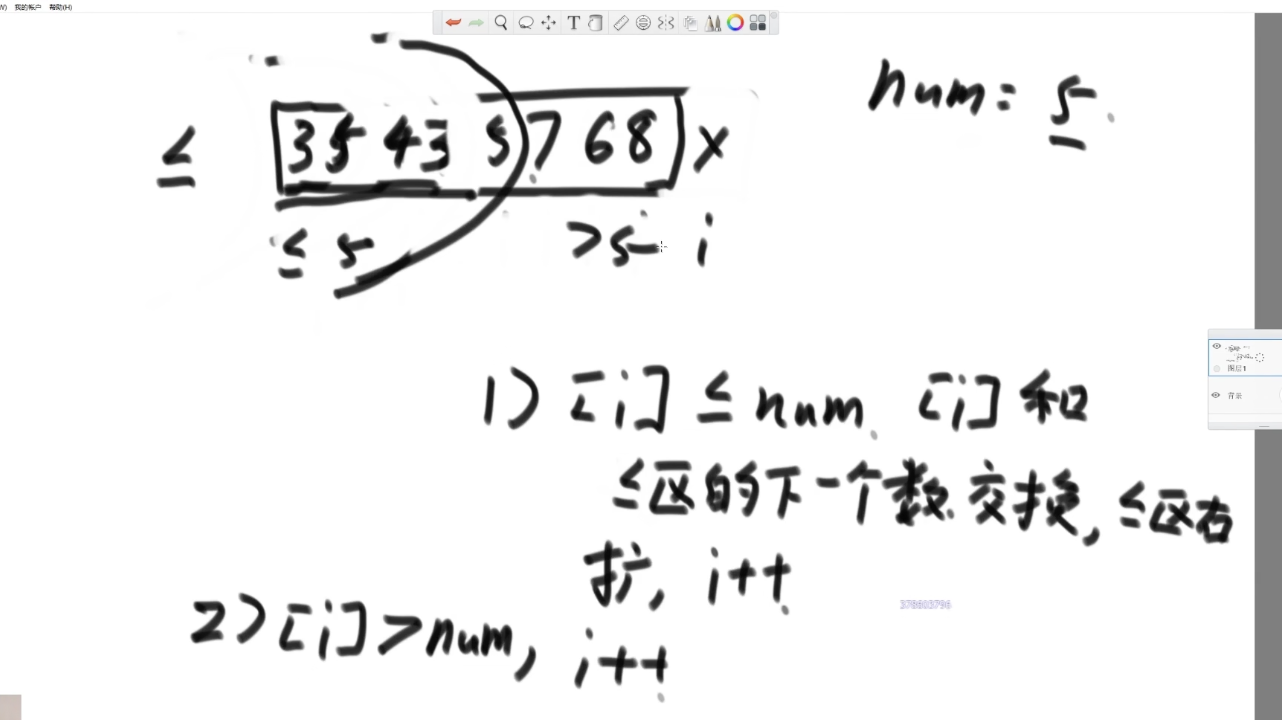 W) 我的帐户 帮助(H)
num = 5
≤ 3 5 4 3 5 7 6 8 x
≤ 5 >5 i
1) [i] ≤ num, [i] 和
≤区的下一个数交换, ≤区右
扩, i++
2) [i] > num, i++
378603796
图层1
背景